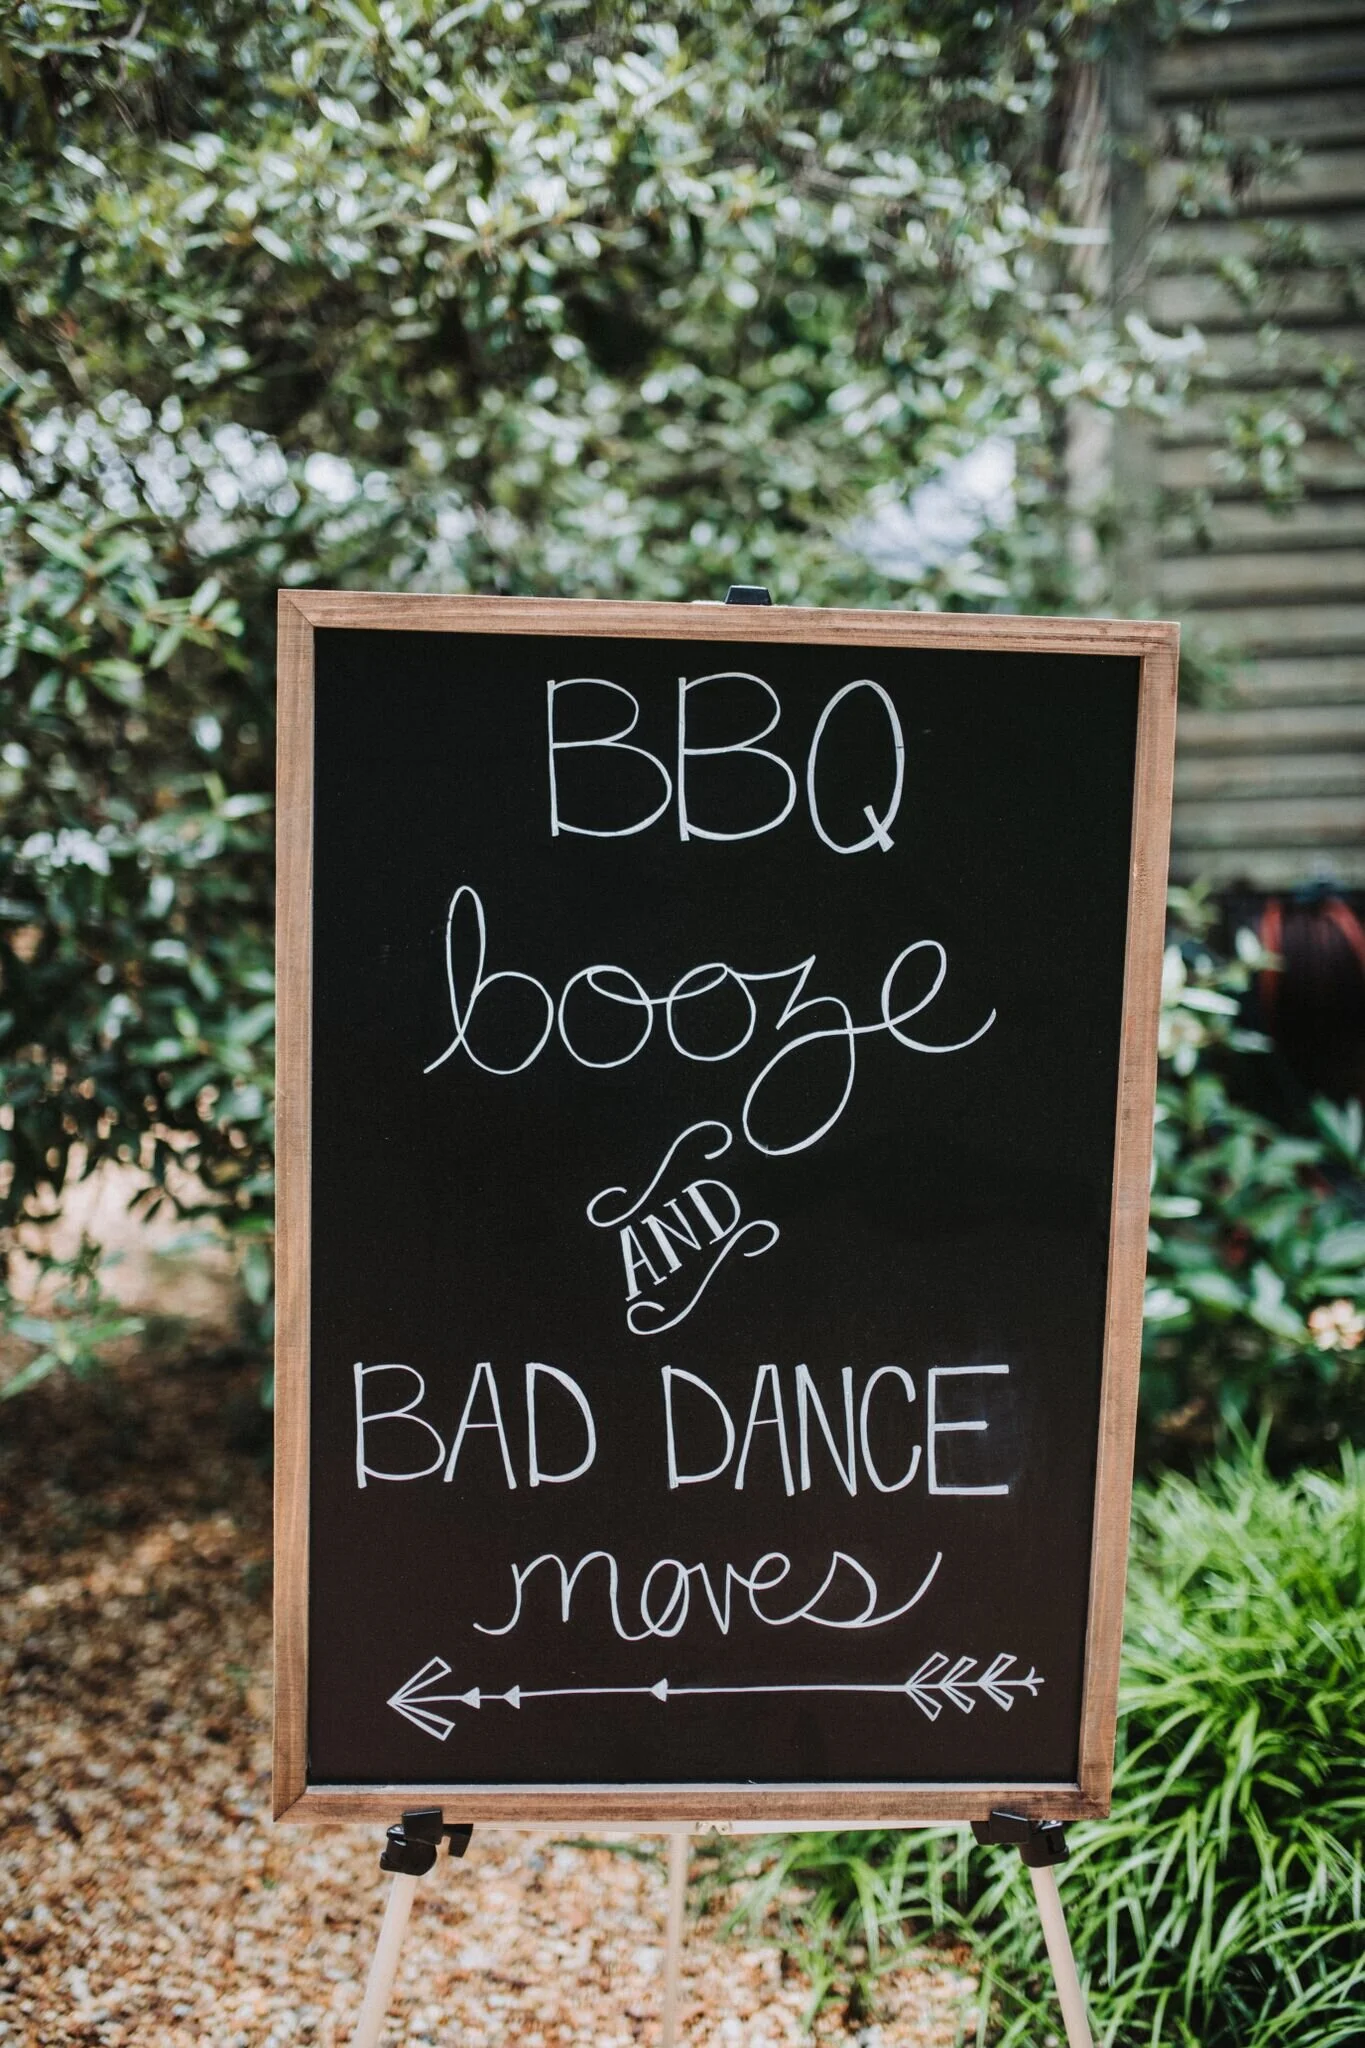 BBQ
booze
AND
BAD DANCE
moves